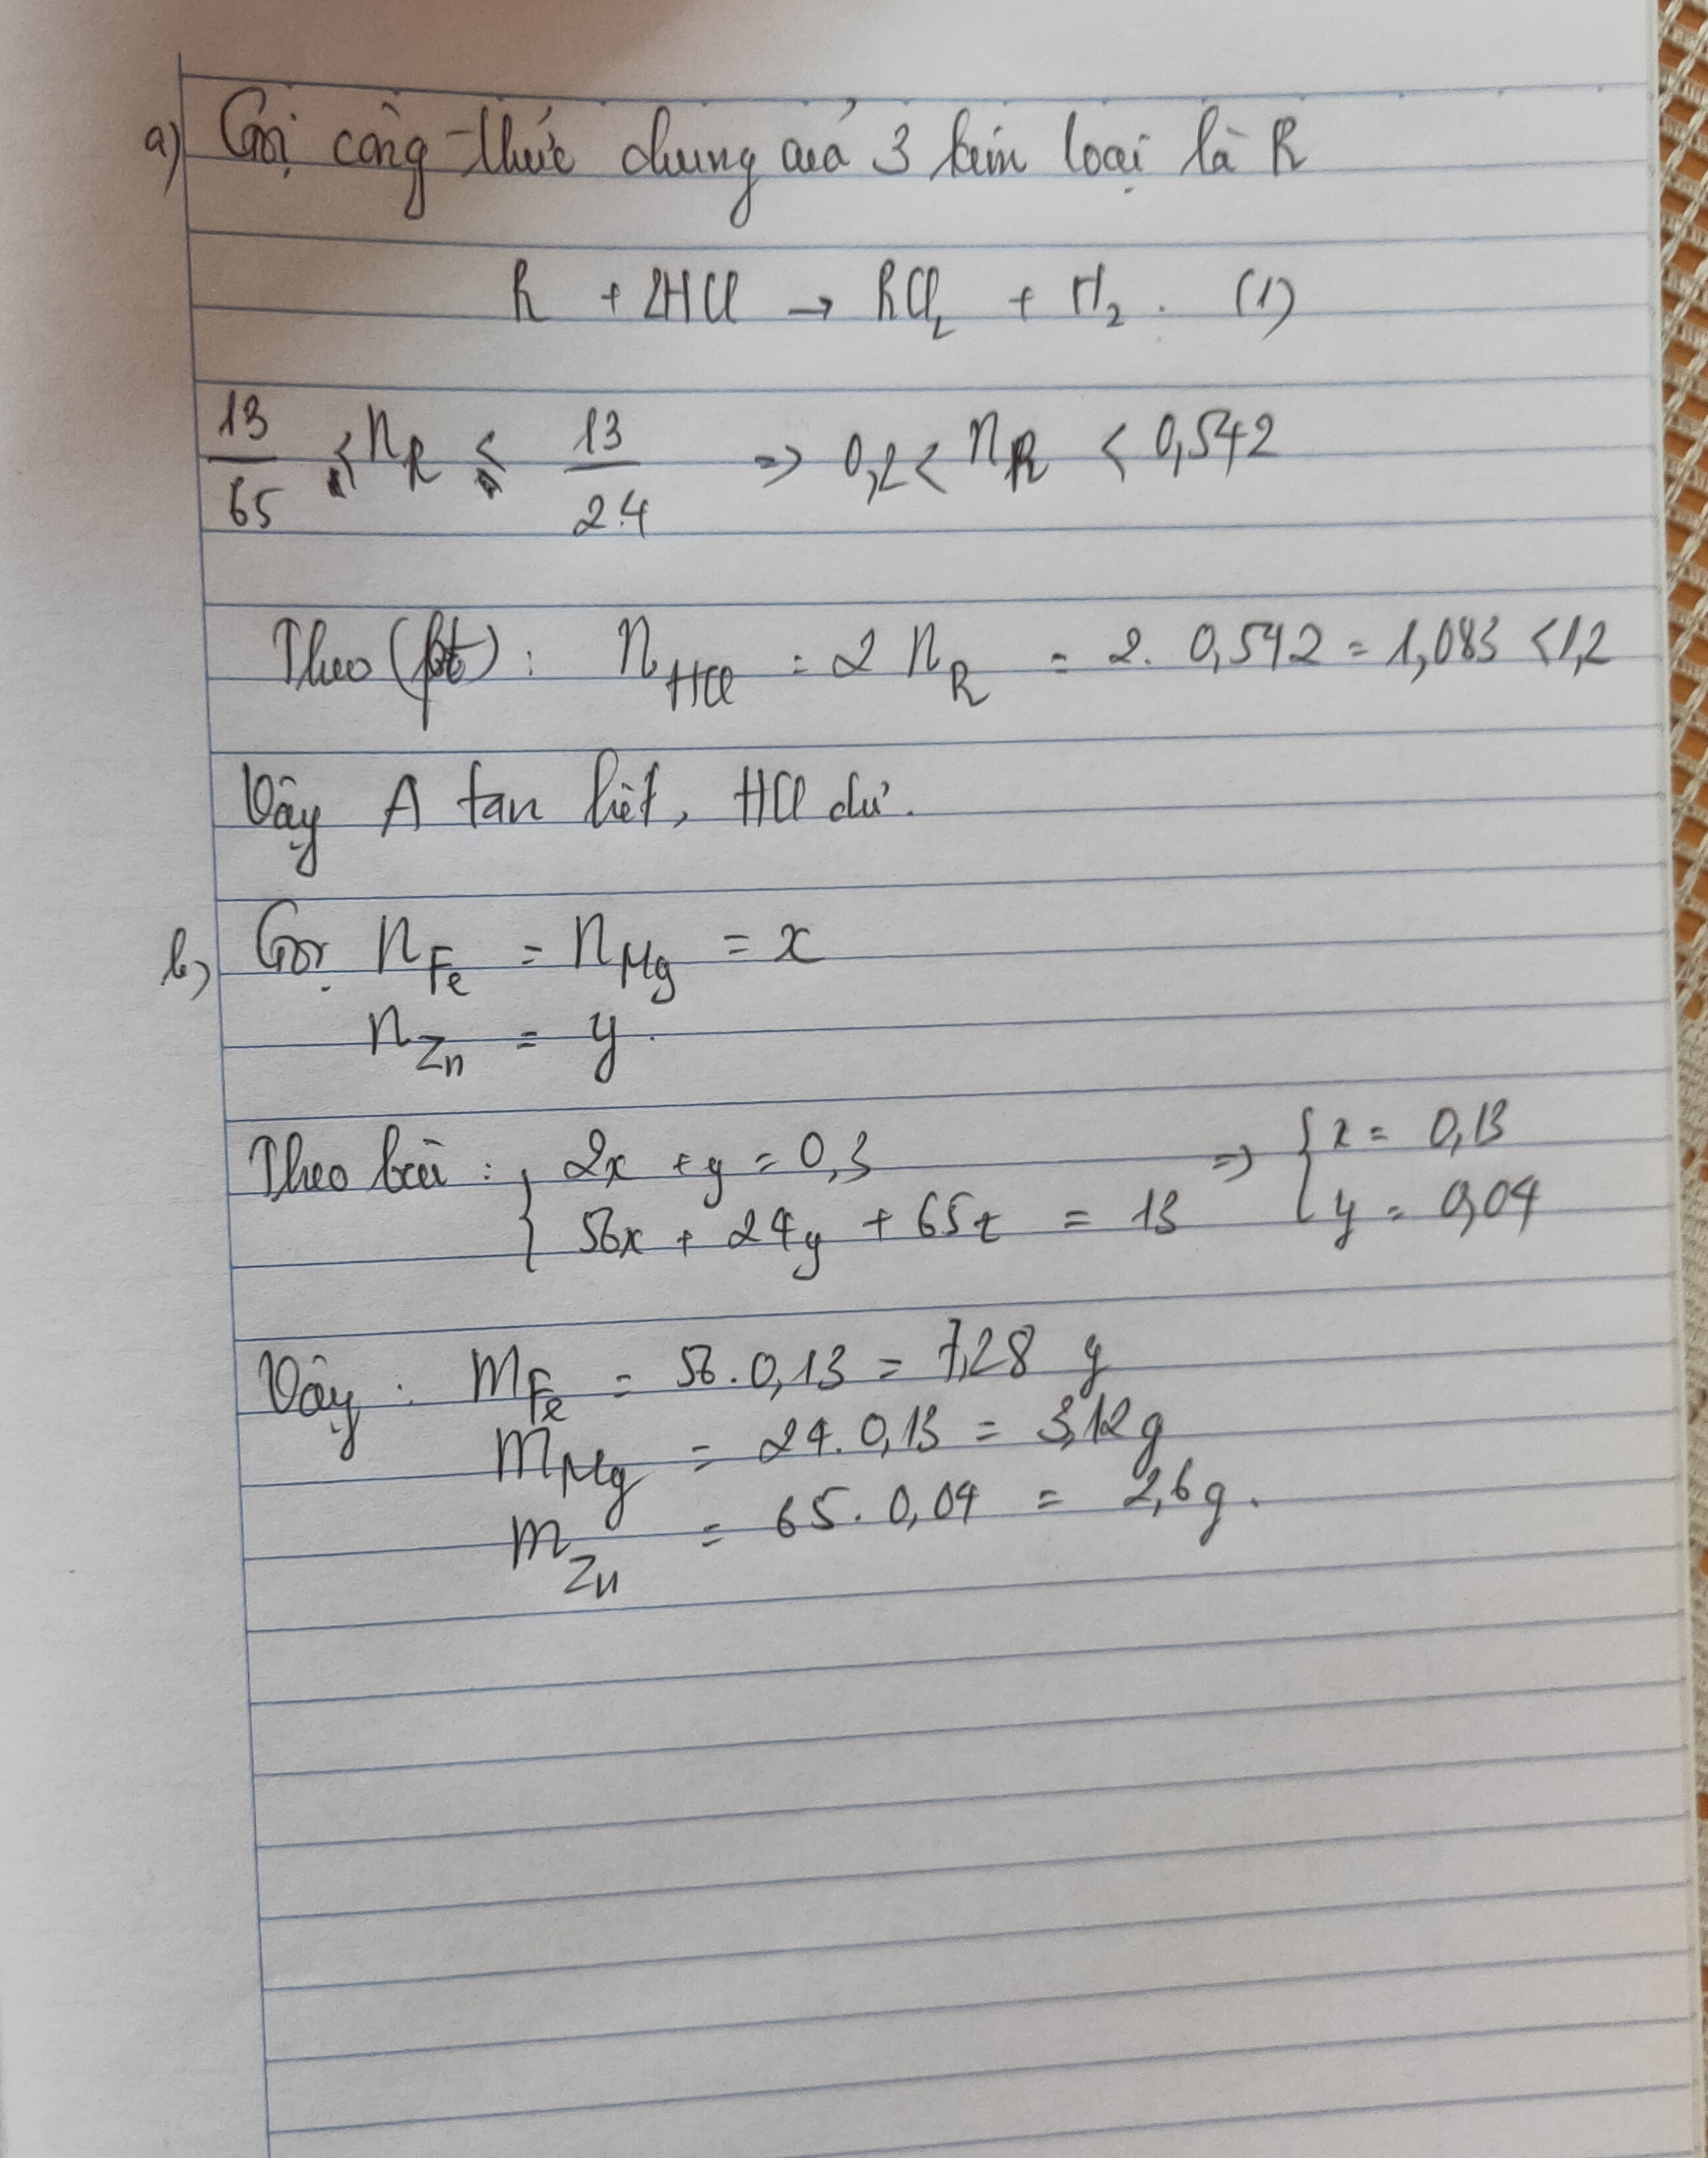 a) Gọi công thức chung của 3 kim loại là R
R + 2HCl → RCl₂ + H₂. (1)
13/65 < n_R < 13/24 => 0,2 < n_R < 0,542
Theo (pt): n_HCl = 2 n_R = 2. 0,542 = 1,083 < 1,2
Vậy A tan hết, HCl dư.
b) Gọi n_Fe = n_Mg = x
n_Zn = y.
Theo bài: { 2x + y = 0,3 => { x = 0,13
56x + 24y + 65z = 13 y = 0,04
Vậy: m_Fe = 56. 0,13 = 7,28 g
m_Mg = 24. 0,13 = 3,12g
m_Zn = 65. 0,04 = 2,6g.